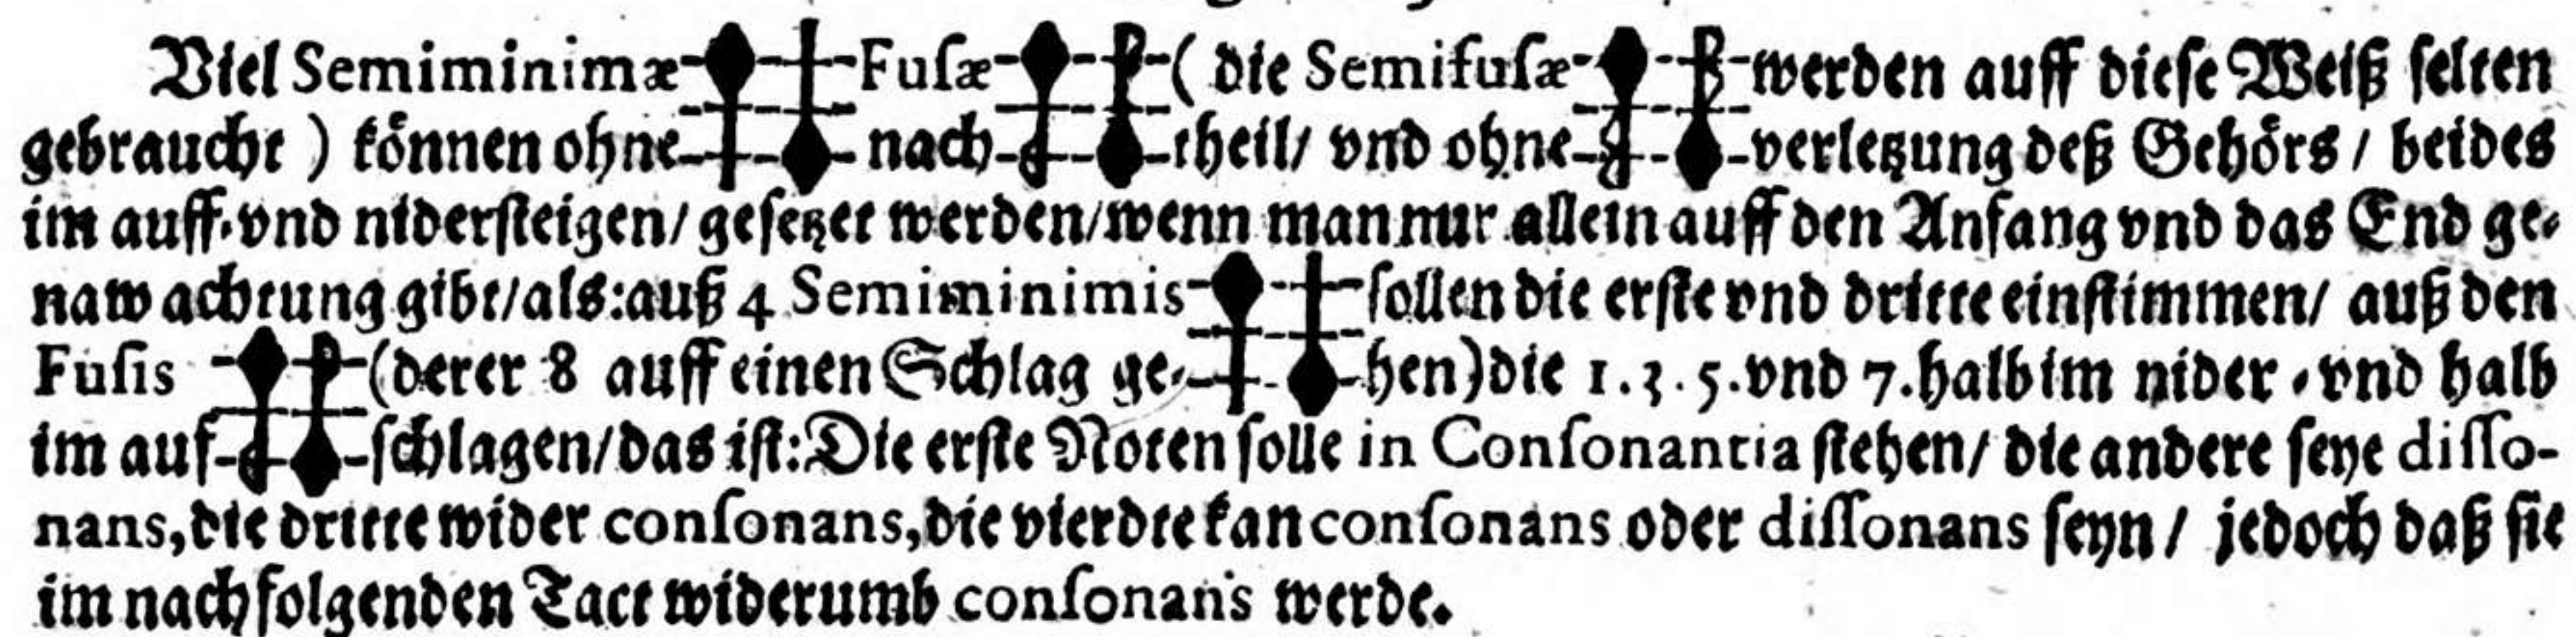 Viel Semiminimæ Fuſæ ( die Semifuſæ werden auff dieſe Weiß ſelten
gebraucht ) können ohne nach theil/ vnd ohne verletzung deß Gehörs / beides
im auff-vnd niderſteigen/ geſetzet werden/wenn man nur allein auff den Anfang vnd das End ge-
naw achtung gibt/als:auß 4 Semiminimis ſollen die erſte vnd dritte einſtimmen/ auß den
Fuſis (derer 8 auff einen Schlag ge- hen)die 1.3.5.vnd 7.halb im nider-vnd halb
im auf- ſchlagen/das iſt:Die erſte Noten ſolle in Conſonantia ſtehen/ die andere ſeye diſſo-
nans,die dritte wider conſonans,die vierdte kan conſonans oder diſſonans ſeyn / jedoch daß ſie
im nachfolgenden Tact widerumb conſonans werde.